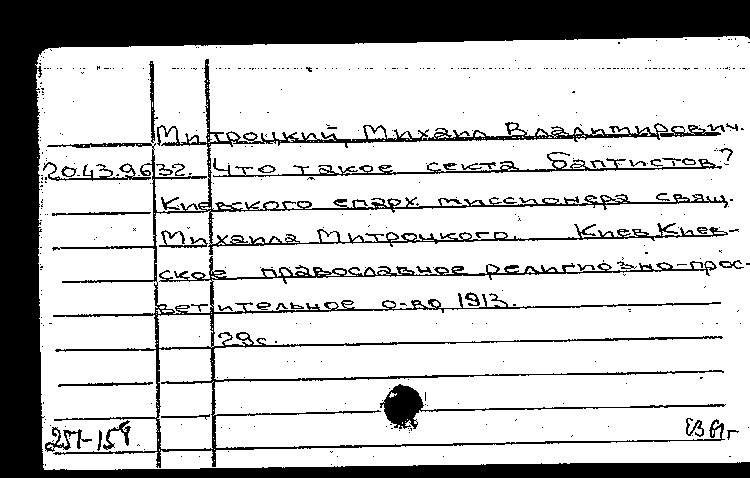 Митроцкий, Михаил Владимирович.
20.43.9632. Что такое секта баптистов?
Киевского епарх миссионера свящ.
Михаила Митроцкого. Киев, Киев-
ское православное религиозно-прос-
ветительное о-во, 1913.
29с.
251-159